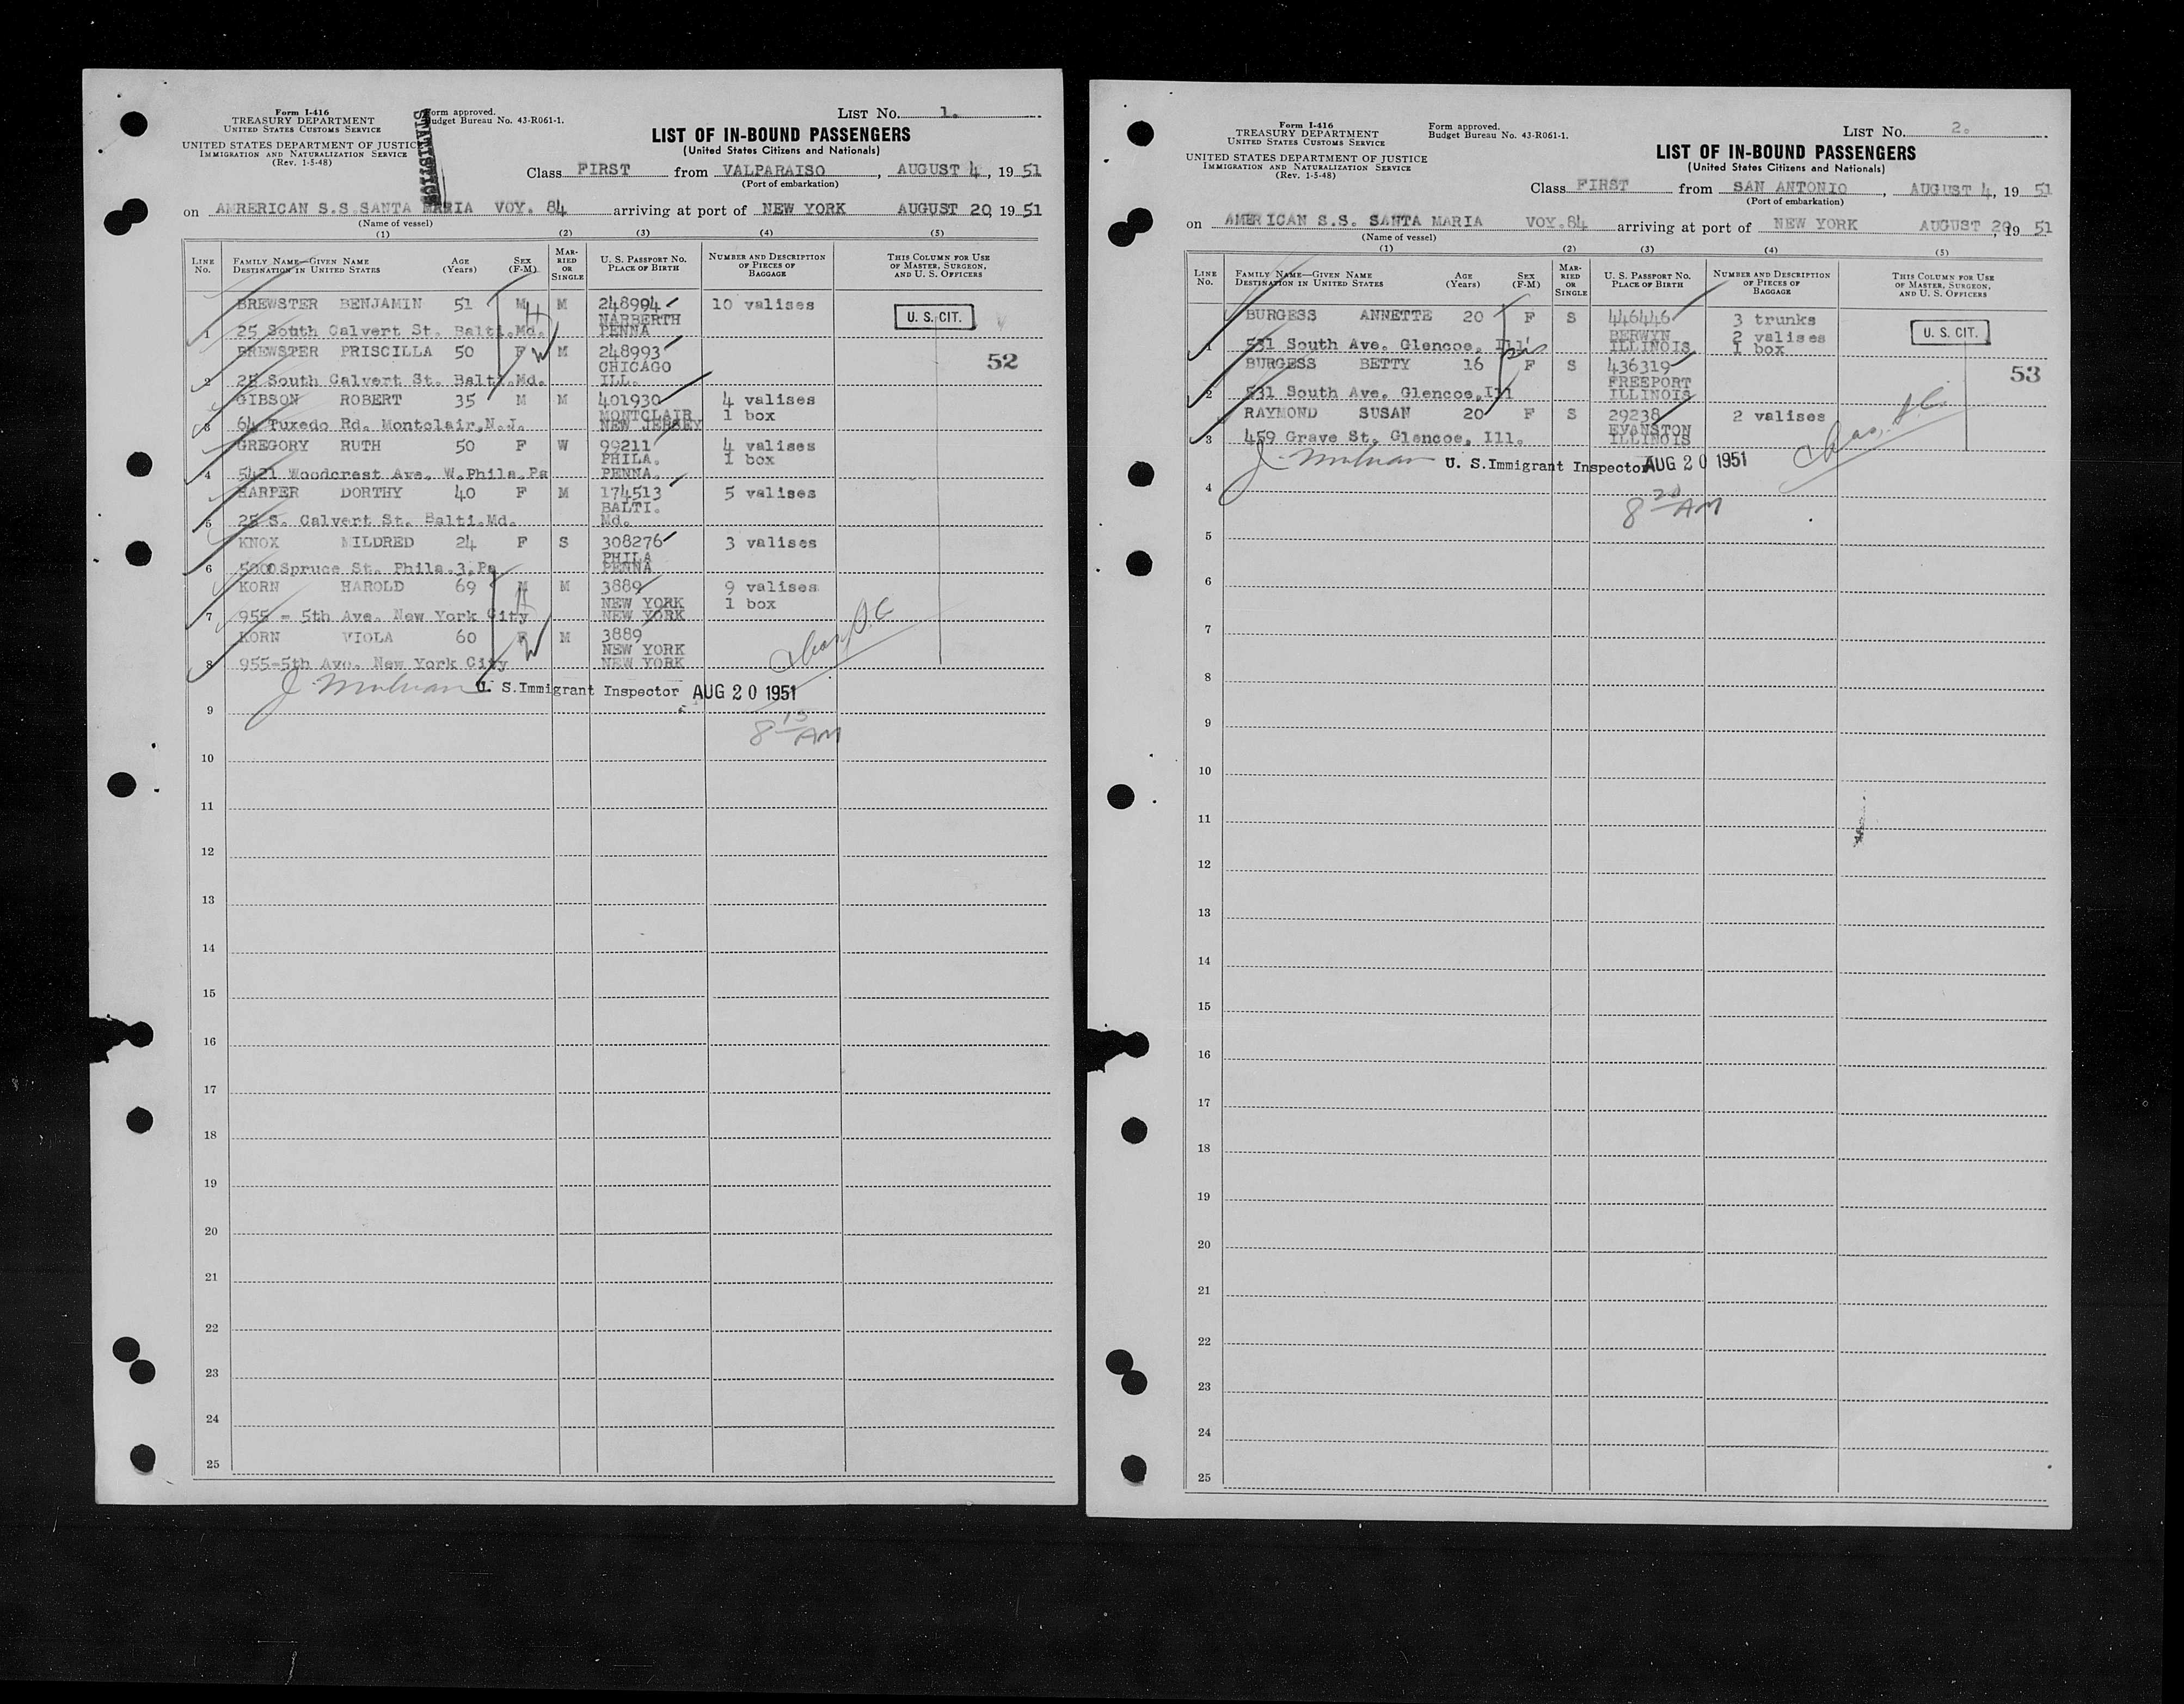 Form I-416
TREASURY DEPARTMENT
UNITED STATES CUSTOMS SERVICE
UNITED STATES DEPARTMENT OF JUSTICE
IMMIGRATION AND NATURALIZATION SERVICE
(Rev. 1-5-48)
STATISTICS
Form approved.
Budget Bureau No. 43-R061-1.
LIST No. 1.
LIST OF IN-BOUND PASSENGERS
(United States Citizens and Nationals)
Class FIRST from VALPARAISO, AUGUST 4, 1951
(Port of embarkation)
on AMRERICAN S.S.SANTA MARIA VOY. 84 arriving at port of NEW YORK AUGUST 20, 1951
(Name of vessel)
(1) (2) (3) (4) (5)
LINE No. FAMILY NAME—GIVEN NAME DESTINATION IN UNITED STATES AGE (Years) SEX (F-M) MARRIED OR SINGLE U. S. PASSPORT No. PLACE OF BIRTH NUMBER AND DESCRIPTION OF PIECES OF BAGGAGE THIS COLUMN FOR USE OF MASTER, SURGEON, AND U. S. OFFICERS
BREWSTER BENJAMIN 51 M M 248994 10 valises U. S. CIT.
NARBERTH
1 25 South Calvert St. Balti.Md. PENNA
H
BREWSTER PRISCILLA 50 F M 248993 52
CHICAGO
W
2 25 South Calvert St. Balti.Md. ILL.
GIBSON ROBERT 35 M M 401930 4 valises
MONTCLAIR 1 box
3 64 Tuxedo Rd. Montclair,N.J. NEW JERSEY
GREGORY RUTH 50 F W 99211 4 valises
PHILA. 1 box
4 5421 Woodcrest Ave. W.Phila.Pa PENNA.
HARPER DORTHY 40 F M 174513 5 valises
BALTI.
5 25 S. Calvert St. Balti.Md. Md.
KNOX MILDRED 24 F S 308276 3 valises
PHILA
6 5000 Spruce St. Phila.3,Pa PENNA
KORN HAROLD 69 M M 3889 9 valises
NEW YORK 1 box
7 955 - 5th Ave. New York City NEW YORK
H
KORN VIOLA 60 F M 3889
NEW YORK
W
8 955-5th Ave. New York City NEW YORK
U. S.Immigrant Inspector AUG 20 1951
8 15 AM
9
10
11
12
13
14
15
16
17
18
19
20
21
22
23
24
25
Form I-416
TREASURY DEPARTMENT
UNITED STATES CUSTOMS SERVICE
UNITED STATES DEPARTMENT OF JUSTICE
IMMIGRATION AND NATURALIZATION SERVICE
(Rev. 1-5-48)
Form approved.
Budget Bureau No. 43-R061-1.
LIST No. 2.
LIST OF IN-BOUND PASSENGERS
(United States Citizens and Nationals)
Class FIRST from SAN ANTONIO, AUGUST 4, 1951
(Port of embarkation)
on AMERICAN S.S. SANTA MARIA VOY.84 arriving at port of NEW YORK AUGUST 20, 1951
(Name of vessel)
(1) (2) (3) (4) (5)
LINE No. FAMILY NAME—GIVEN NAME DESTINATION IN UNITED STATES AGE (Years) SEX (F-M) MARRIED OR SINGLE U. S. PASSPORT No. PLACE OF BIRTH NUMBER AND DESCRIPTION OF PIECES OF BAGGAGE THIS COLUMN FOR USE OF MASTER, SURGEON, AND U. S. OFFICERS
BURGESS ANNETTE 20 F S 446446 3 trunks U. S. CIT.
BERWYN 2 valises
1 531 South Ave. Glencoe, Ill. ILLINOIS 1 box
BURGESS BETTY 16 F S 436319 53
FREEPORT
2 531 South Ave. Glencoe,Ill ILLINOIS
RAYMOND SUSAN 20 F S 29238 2 valises
EVANSTON
3 459 Grave St. Glencoe, Ill. ILLINOIS
U. S.Immigrant Inspector AUG 20 1951
4
8 20 AM
5
6
7
8
9
10
11
12
13
14
15
16
17
18
19
20
21
22
23
24
25